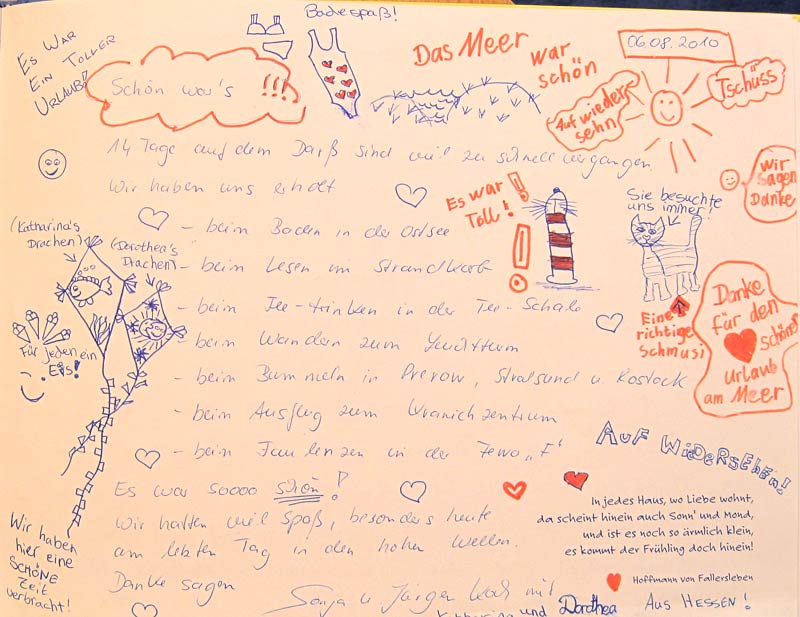 Badespaß!
Es war
ein toller
Urlaub!
Schön war's !!!
Das Meer
war
schön
06.08.2010
Auf wieder
sehn
Tschüss
Wir
sagen
Danke
14 Tage auf dem Darß sind viel zu schnell vergangen.
Wir haben uns erholt
Es war
Toll!
Sie besuchte
uns immer!
Eine
richtige
Schmusi
(Katharina's
Drachen)
(Dorothea's
Drachen)
Für jeden ein
Eis!
- beim Baden in der Ostsee
- beim Lesen im Strandkorb
- beim Tee-trinken in der Tee-Schale
- beim Wandern zum Leuchtturm
- beim Bummeln in Prerow, Stralsund u. Rostock
- beim Ausflug zum Kranichzentrum
- beim Faulenzen in der Fewo „F"
Danke
für den
schönen
Urlaub
am Meer
Auf Wiedersehen!
Es war soooo schön!
Wir hatten viel Spaß, besonders heute
am letzten Tag in den hohen Wellen.
Danke sagen
Sonja u. Jürgen
mit
Katharina und Dorothea
Aus Hessen!
Wir haben
hier eine
schöne
Zeit
verbracht!
In jedes Haus, wo Liebe wohnt,
da scheint hinein auch Sonn' und Mond,
und ist es noch so ärmlich klein,
es kommt der Frühling doch hinein!
Hoffmann von Fallersleben